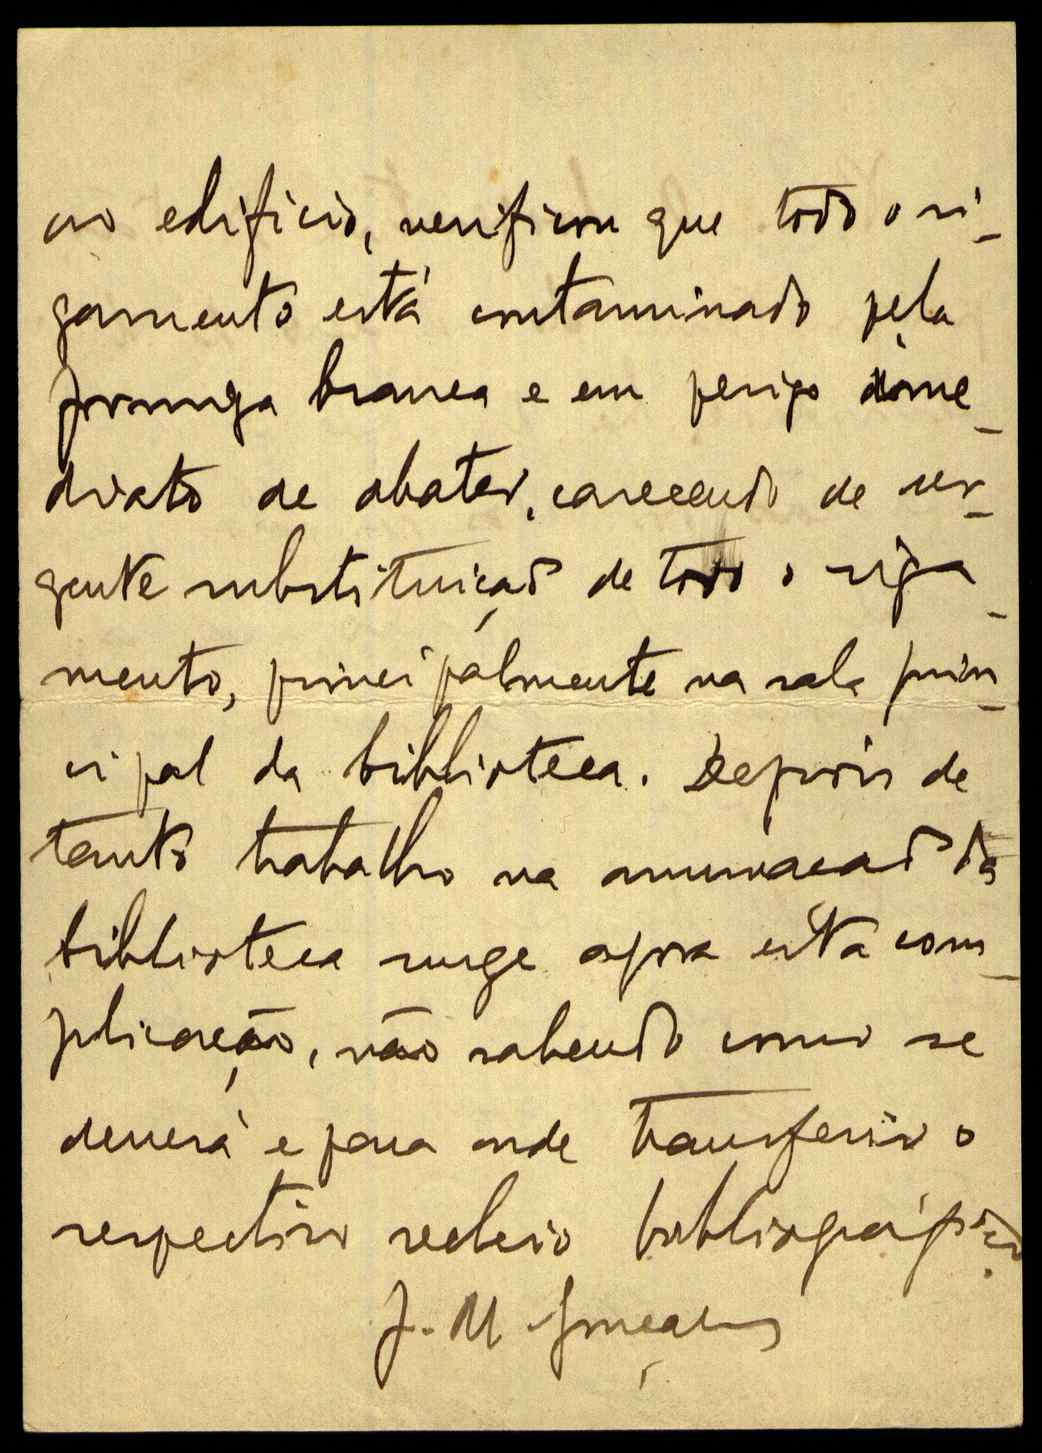 ao edifício, verificou que todo o vi-
gamento está contaminado pela
formiga branca e em perigo ime-
diato de abater, carecendo de ur-
gente substituição de todo o viga-
mento, principalmente na sala prin-
cipal da biblioteca. Depois de
tanto trabalho na arrumação da
biblioteca surge agora esta com-
plicação, não sabendo como se
deverá e para onde transferir o
respectivo recheio bibliográfico.
J. M. Gonçalves